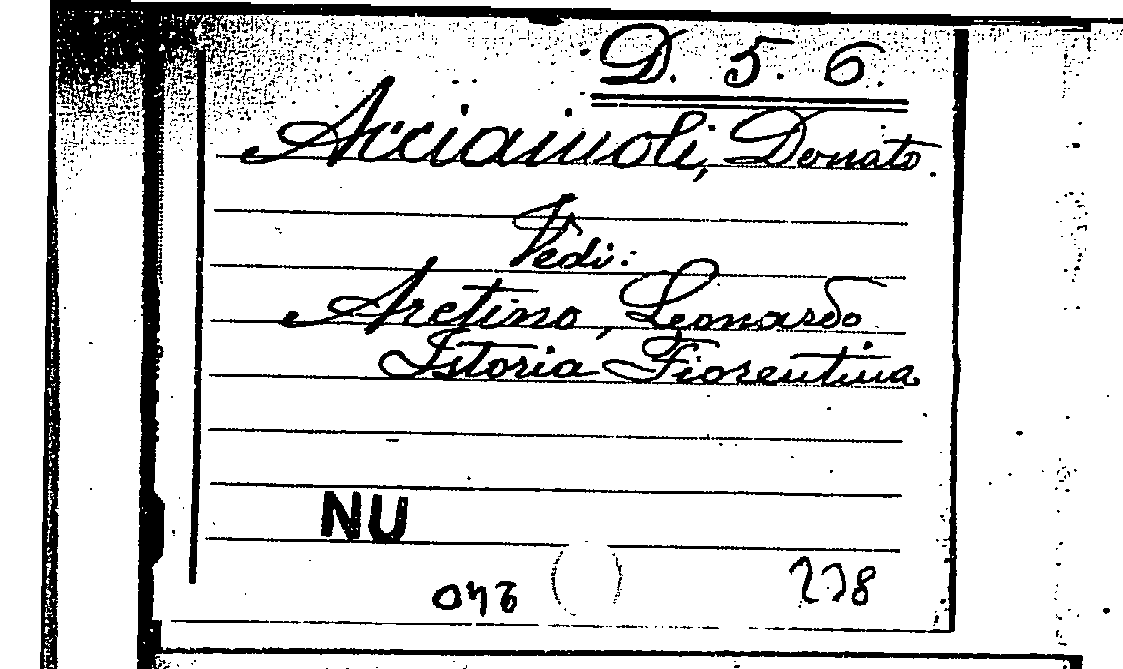 D. 5. 6.
Acciaiuoli, Donato.
Vedi:
Aretino, Leonardo
Istoria Fiorentina
NU
240
238